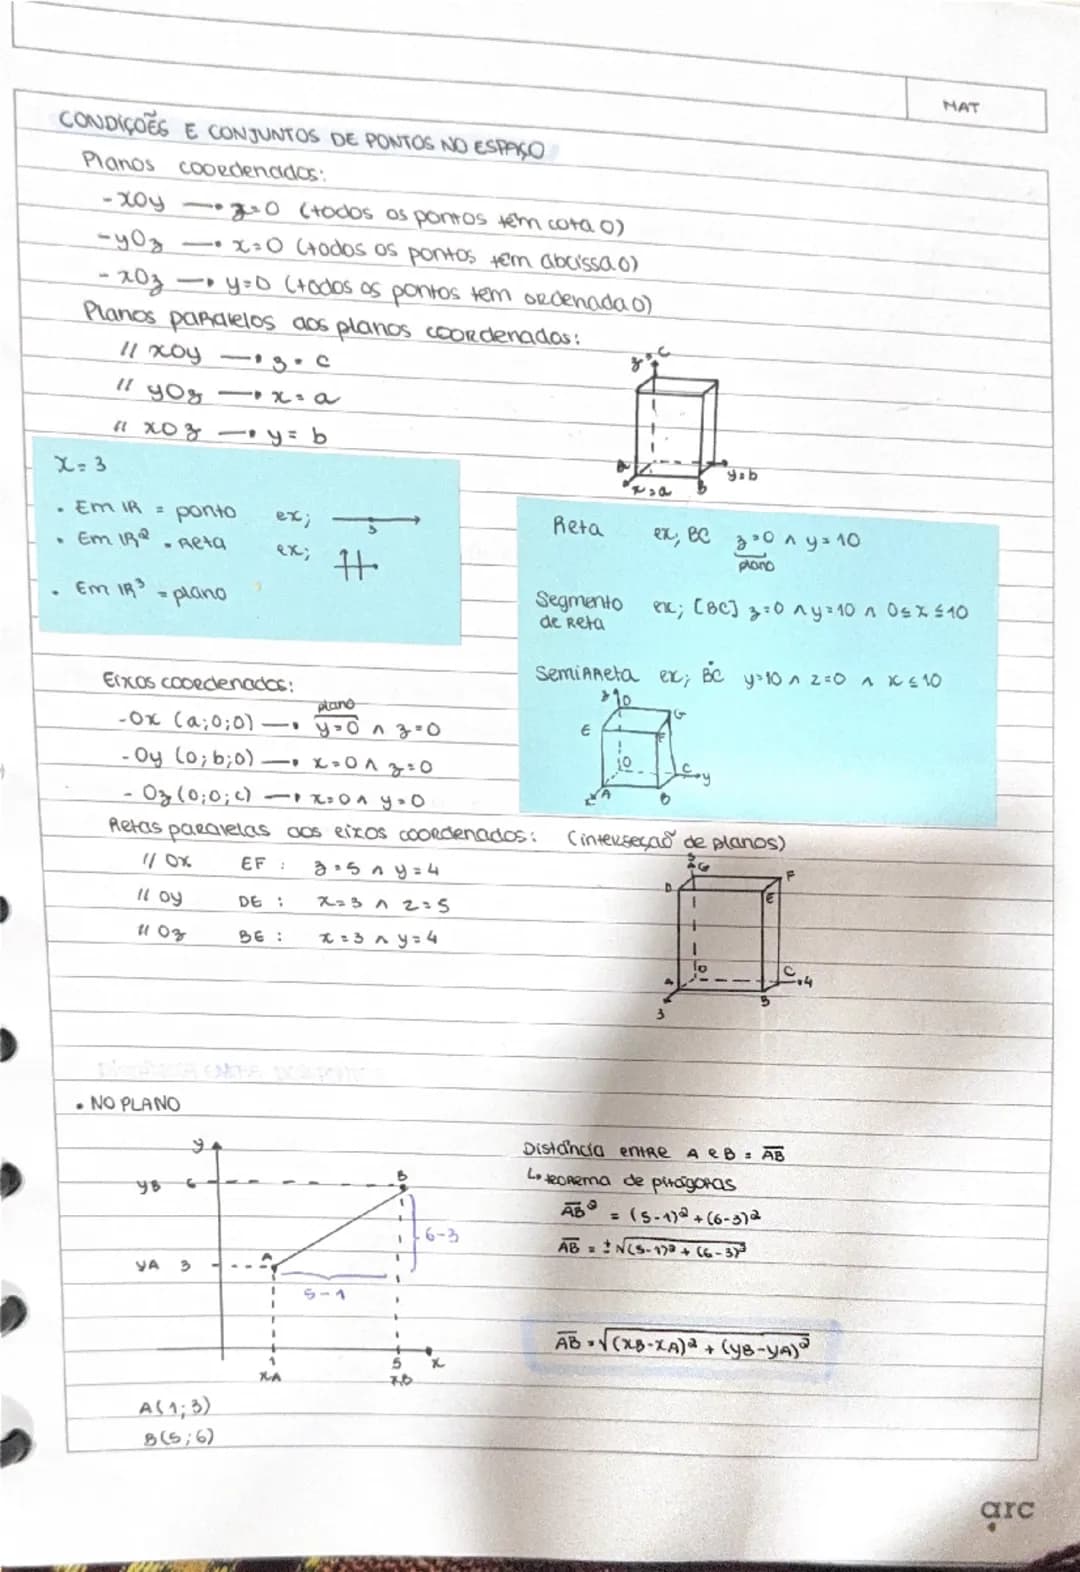 MAT
CONDIÇÕES E CONJUNTOS DE PONTOS NO ESPAÇO
Planos coordenados:
- xOy → z=0 (todos os pontos têm cota 0)
- yOz → x=0 (todos os pontos têm abcissa 0)
- xOz → y=0 (todos os pontos têm ordenada 0)
Planos paralelos aos planos coordenados:
// xOy → z = c
// yOz → x = a
// xOz → y = b
z=c
y=b
x=a
B
x = 3
• Em IR = ponto ex; 3
• Em IR² = Reta ex;
• Em IR³ = plano
Reta ex; BC z=0 ∧ y=10
plano
Segmento de Reta ex; [BC] z=0 ∧ y=10 ∧ 0≤x≤10
Semirreta ex; ḂC y=10 ∧ z=0 ∧ x≤10
z D
G
E
F
O
C y
x A
B
Eixos coordenados:
plano
- Ox (a;0;0) → y=0 ∧ z=0
- Oy (0;b;0) → x=0 ∧ z=0
- Oz (0;0;c) → x=0 ∧ y=0
Retas paralelas aos eixos coordenados: (interseção de planos)
// Ox EF : z=5 ∧ y=4
// Oy DE : x=3 ∧ z=5
// Oz BE : x=3 ∧ y=4
5
G
F
D
E
O
A
C 4
B
3
• NO PLANO
y
yB 6
B
6-3
yA 3
A
5-1
1
5
x
xA
xB
A(1;3)
B(5;6)
Distância entre A e B = AB
↳ teorema de pitágoras
AB² = (5-1)² + (6-3)²
AB = ±√(5-1)² + (6-3)²
AB = √(xB-xA)² + (yB-yA)²
arc